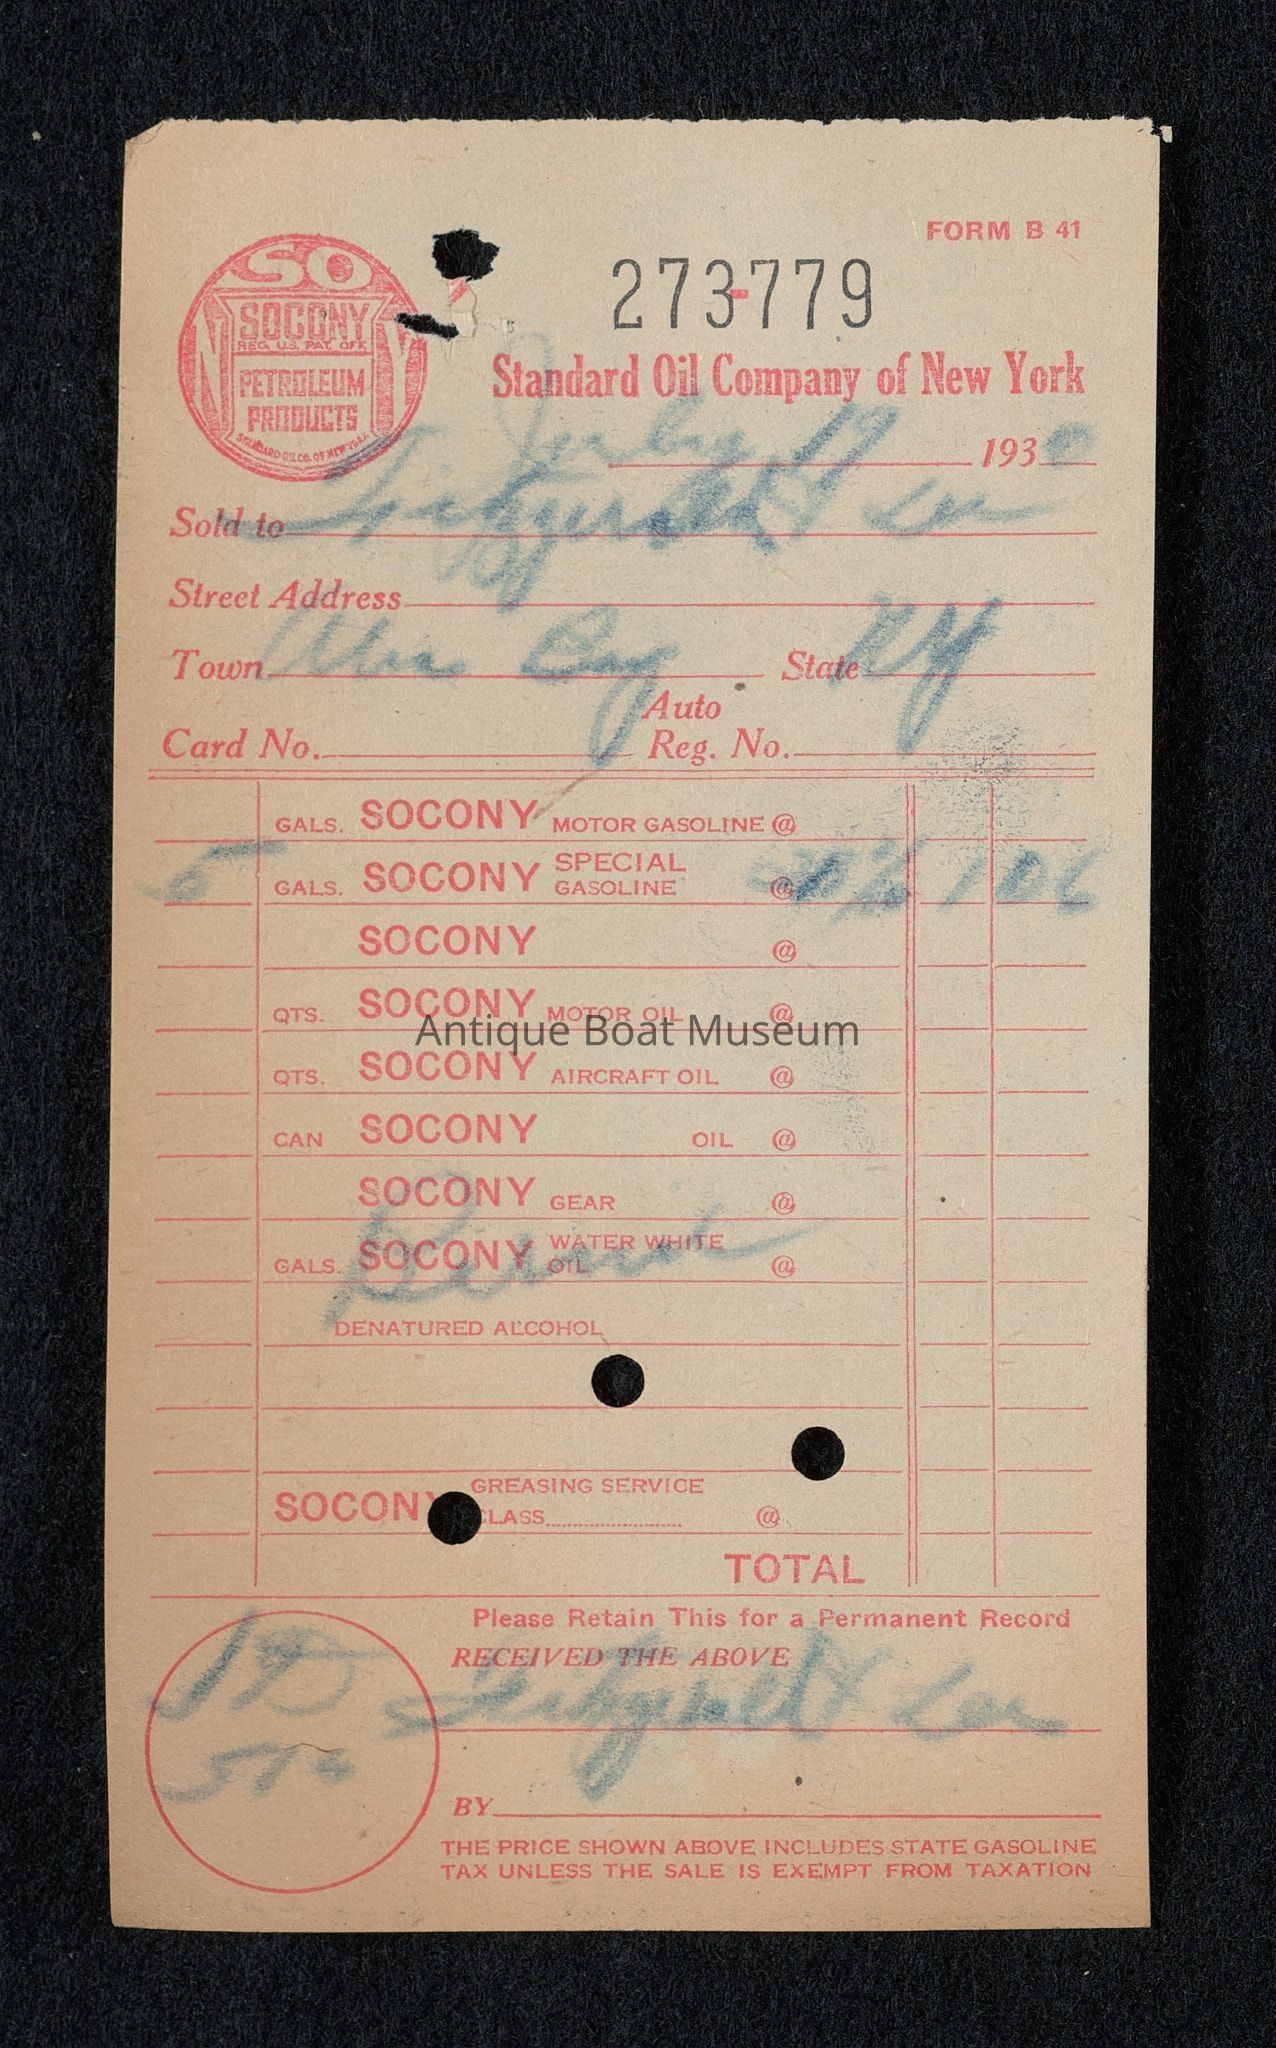 FORM B 41
SO
SOCONY
REG. U.S. PAT. OFF.
PETROLEUM
PRODUCTS
STANDARD OIL CO. OF NEW YORK
NY
273-779
Standard Oil Company of New York
July 19 1930
Sold to Fitzgerald & Lee
Street Address
Town Alex Bay State NY
Card No. Auto Reg. No.
GALS. SOCONY MOTOR GASOLINE @
5 GALS. SOCONY SPECIAL GASOLINE @ 1 06
SOCONY @
QTS. SOCONY MOTOR OIL @
Antique Boat Museum
QTS. SOCONY AIRCRAFT OIL @
CAN SOCONY OIL @
SOCONY GEAR @
GALS. SOCONY WATER WHITE OIL @
DENATURED ALCOHOL
SOCONY GREASING SERVICE
CLASS @
TOTAL
Please Retain This for a Permanent Record
RECEIVED THE ABOVE
Fitzgerald & Lee
BY
THE PRICE SHOWN ABOVE INCLUDES STATE GASOLINE
TAX UNLESS THE SALE IS EXEMPT FROM TAXATION